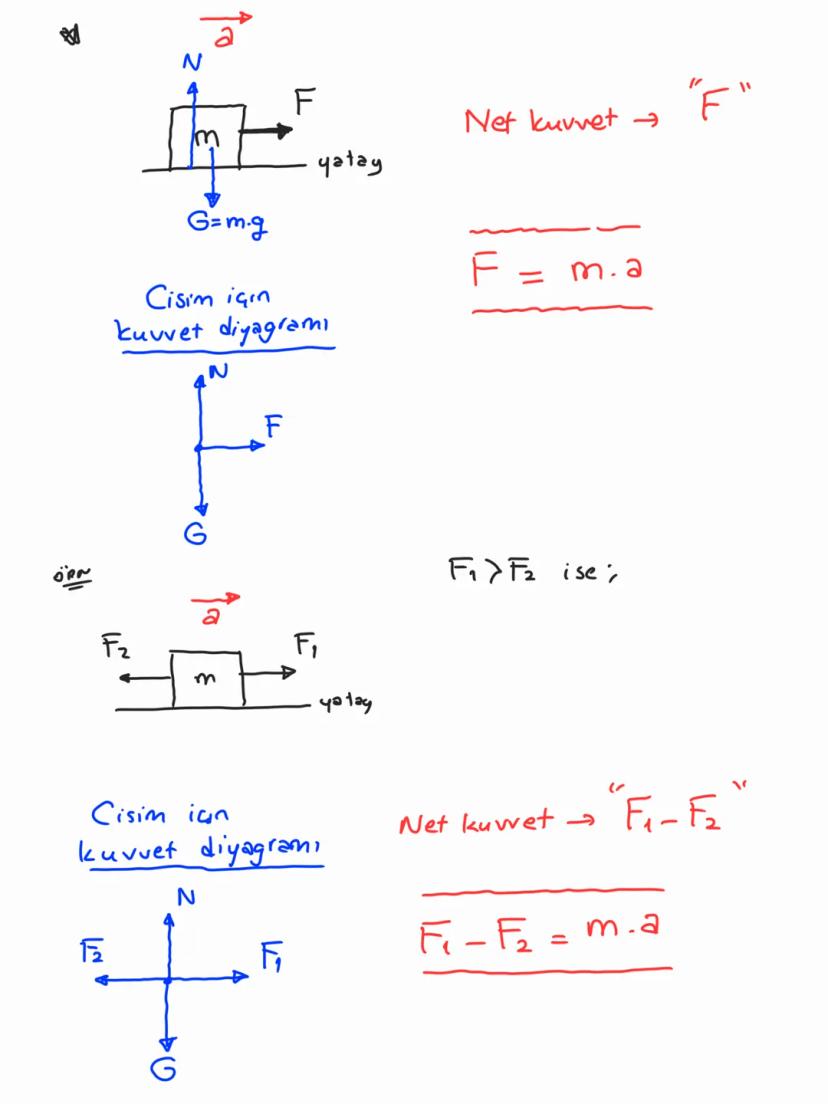 a
N
F
m
yatay
G=m.g
Net kuvvet → "F"
F = m.a
Cisim için
kuvvet diyagramı
N
F
G
ÖRN
F₁ > F₂ ise ;
a
F₂
F₁
m
yatay
Cisim için
kuvvet diyagramı
Net kuvvet → "F₁ - F₂"
N
F₂
F₁
G
F₁ - F₂ = m.a